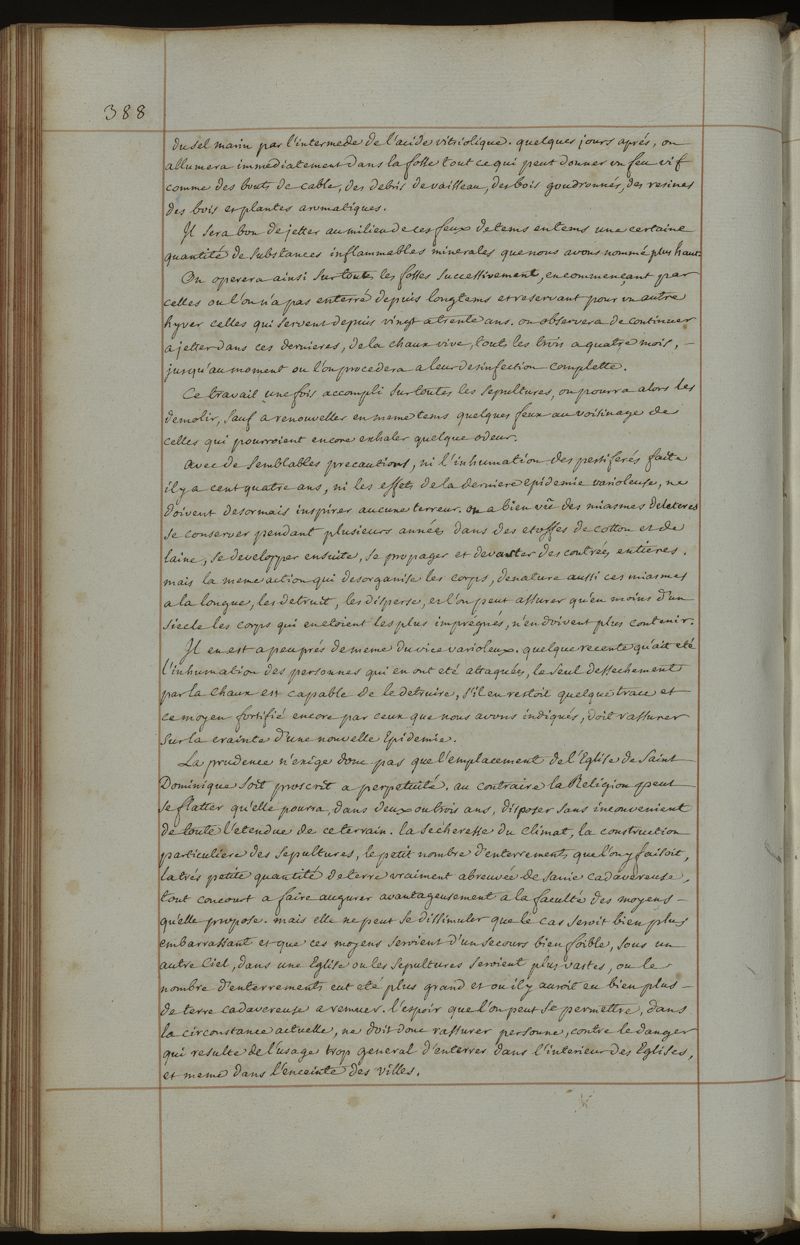 388
du sel marin par l'intermede de l'acide vitriolique. quelques jours aprés, on
allumera immediatement dans la fosse tout ce qui peut donner un feu vif
comme des bouts de cable, des debris de vaisseau, des bois goudronnés, des resines
des bois et plantes aromatiques.
Il sera bon de jetter au milieu de ces feux de tems en tems une certaine
quantité de substances inflammables minerales que nous avons nommé plus haut.
On operera ainsi sur toutes les fosses successivement, en commençant par
celles ou l'on n'a pas enterré depuis longtems et reservant pour un autre
hyver celles qui servent depuis vingt a trente ans. on observera de continuer
a jetter dans ces dernieres, de la chaux vive, tous les trois a quatre mois, –
jusqu'au moment ou l'on procedera a leur desinfection complette.
Ce travail une fois accompli sur toutes les sepultures, on pourra alors les
demolir, sauf a renouveller en meme tems quelques feux au voisinage de
celles qui pourroient encore exhaler quelque odeur.
Avec de semblables precautions, ni l'inhumation des pestiferés faite
il y a cent quatre ans, ni les effets de la derniere epidemie varioleuse, ne
doivent desormais inspirer aucune terreur. on a bien vû des miasmes deleteres
se conserver pendant plusieurs années dans des etoffes de cotton et de
laine, se developper ensuite, se propager et devaster des contrées entieres.
mais la meme action qui desorganise les corps, denature aussi ces miasmes
a la longue, les detruit, les disperse, et l'on peut assurer qu'en moins d'un
siecle les corps qui en etoient les plus impregnés, n'en doivent plus contenir.
Il en est a peu prés de meme du vice varioleux. quelque recente qu'ait eté
l'inhumation des personnes qui en ont eté attaquées, le seul dessechement
par la chaux est capable de le detruire, s'il en restoit quelque trace et
ce moyen fortifié encore par ceux que nous avons indiqués, doit rassurer
sur la crainte d'une nouvelle Epidemie.
La prudence n'exige donc pas que l'emplacement de l'Eglise de Saint
Dominique soit proscrit a perpetuité. au contraire la Religion peut
se flatter qu'elle pourra, dans deux ou trois ans, disposer sans inconvenient
de toute l'etendue de ce terrain. la secheresse du climat, la construction
particuliere des sepultures, le petit nombre d'enterrements que l'on y faisoit,
la trés petite quantité de terre vraiment abreuvée de sanie cadavereuse,
tout concourt a faire augurer avantageusement a la faculté des moyens –
qu'elle propose. mais elle ne peut se dissimuler que le cas seroit bien plus
embarrassant et que ces moyens seroient d'un secours bien foible, sous un
autre Ciel, dans une Eglise ou les sepultures seroient plus vastes, ou le
nombre d'enterrements eut eté plus grand et ou il y auroit eu bien plus –
de terre cadavereuse a remuer. l'espoir que l'on peut se permettre, dans
la circonstance actuelle, ne doit donc rassurer personne, contre le danger
qui resulte de l'usage trop general d'enterrer dans l'interieur des Eglises,
et meme dans l'enceinte des villes.